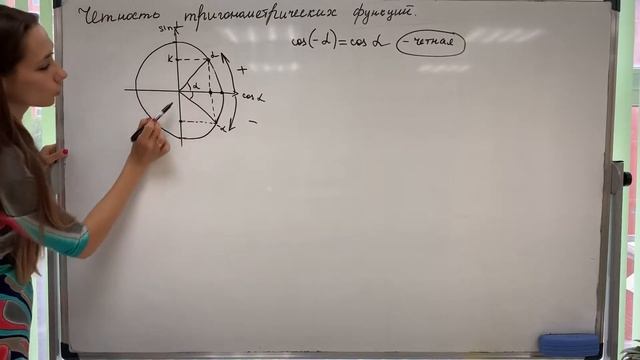 Четность тригонометрических функций.
cos(-α) = cos α - четная
sin
к α
α +
cos α
-α
-